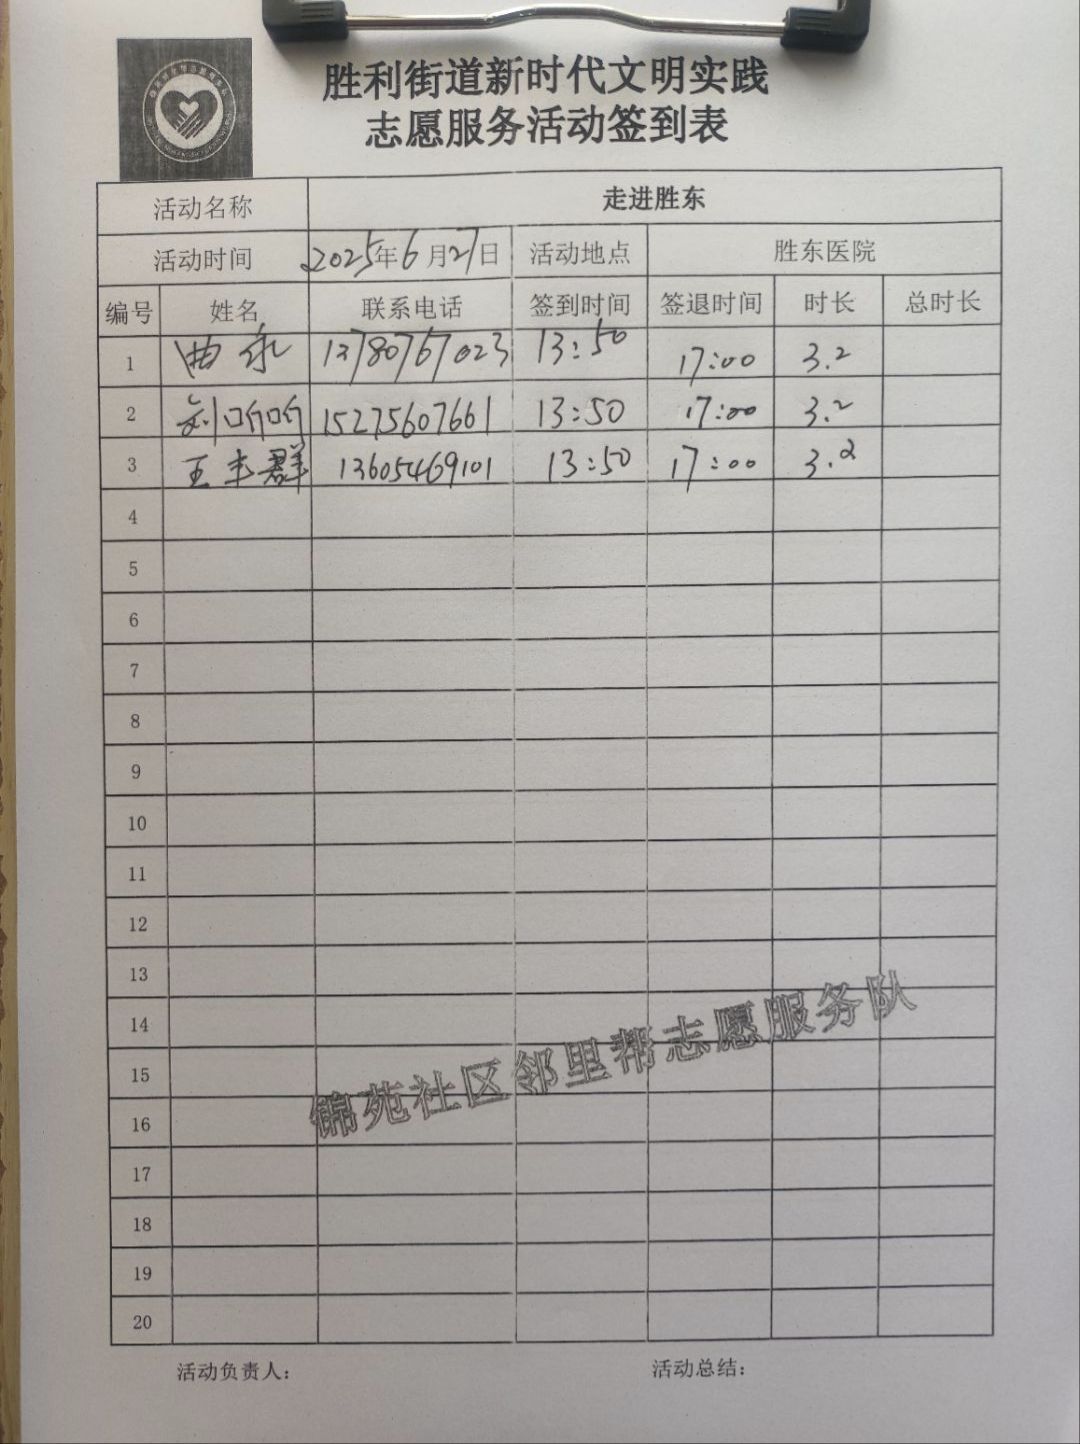 胜利街道新时代文明实践
志愿服务活动签到表
活动名称 走进胜东
活动时间 2025年6月27日 活动地点 胜东医院
编号 姓名 联系电话 签到时间 签退时间 时长 总时长
1 曲永 13780767023 13:50 17:00 3.2
2 刘昕昕 15275607661 13:50 17:00 3.2
3 王丰群 13605469101 13:50 17:00 3.2
4
5
6
7
8
9
10
11
12
13
14
15
16
17
18
19
20
锦苑社区邻里帮志愿服务队
活动负责人： 活动总结：